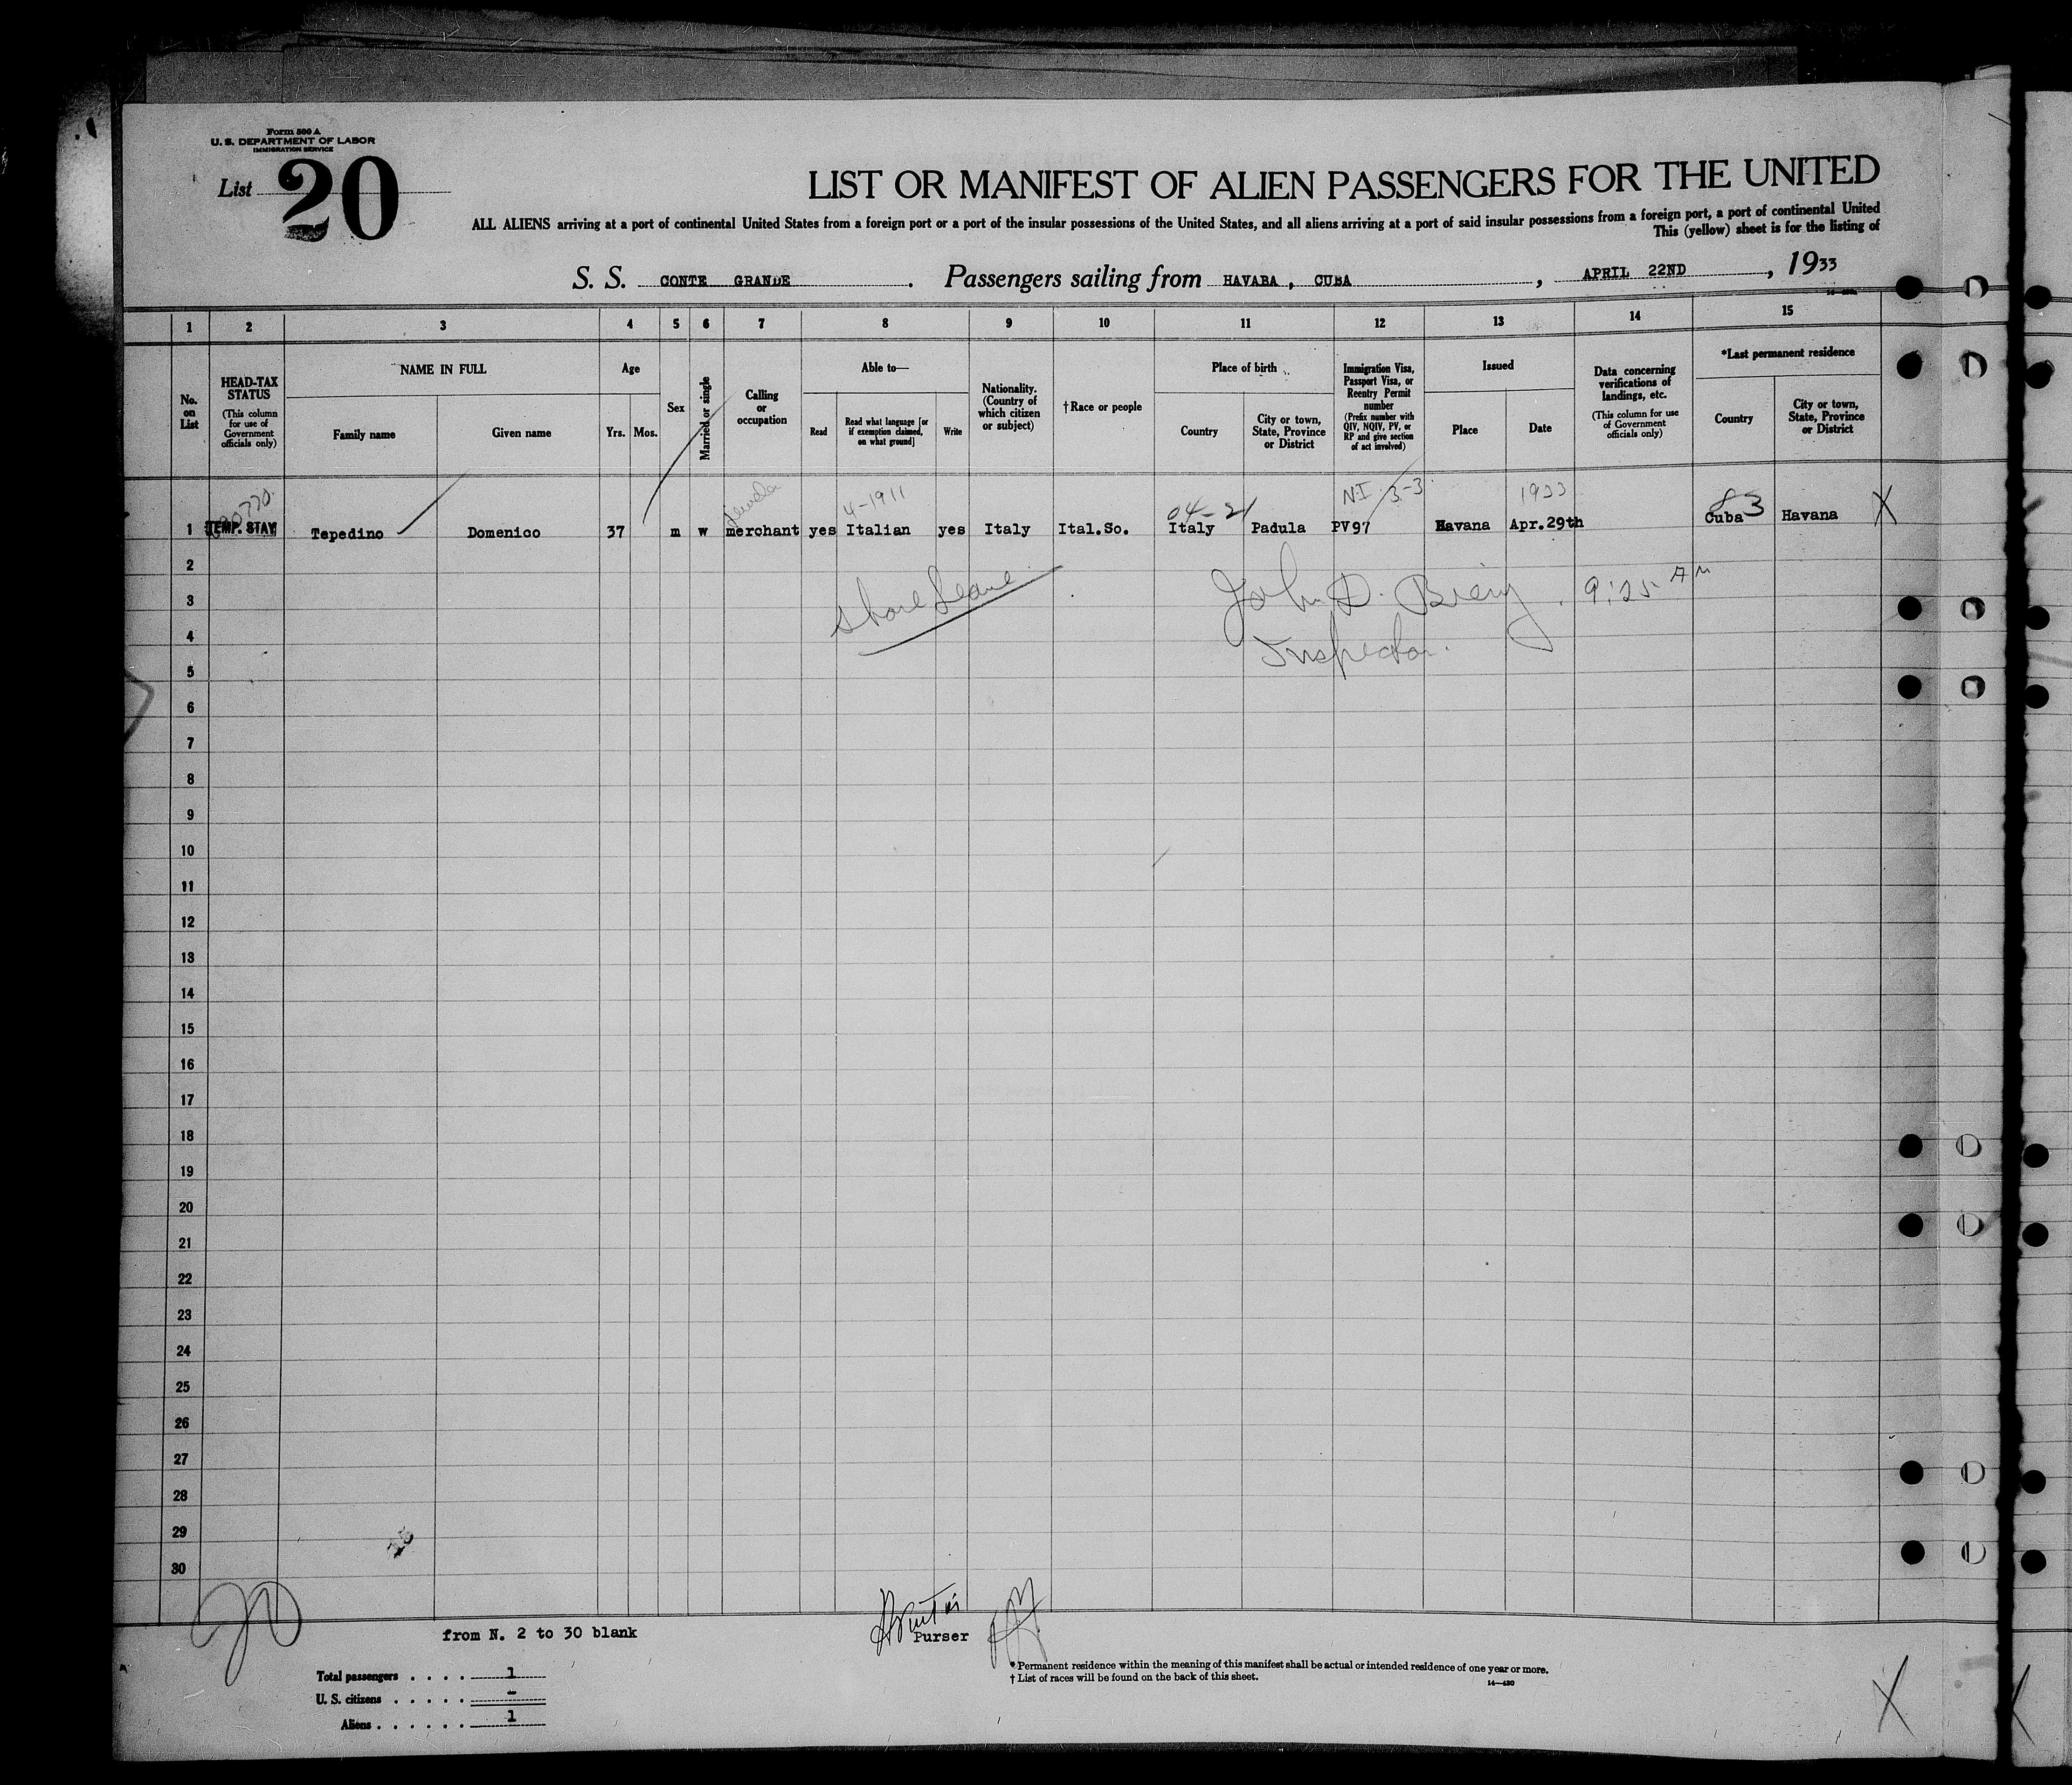 Form 500 A
U. S. DEPARTMENT OF LABOR
IMMIGRATION SERVICE
List 20
LIST OR MANIFEST OF ALIEN PASSENGERS FOR THE UNITED
ALL ALIENS arriving at a port of continental United States from a foreign port or a port of the insular possessions of the United States, and all aliens arriving at a port of said insular possessions from a foreign port, a port of continental United
This (yellow) sheet is for the listing of
S. S. CONTE GRANDE . Passengers sailing from HAVABA , CUBA , APRIL 22ND , 1933
1 2 3 4 5 6 7 8 9 10 11 12 13 14 15
No. on List
HEAD-TAX STATUS (This column for use of Government officials only)
NAME IN FULL
Family name Given name
Age
Yrs. Mos.
Sex
Married or single
Calling or occupation
Able to—
Read
Read what language [or if exemption claimed, on what ground]
Write
Nationality. (Country of which citizen or subject)
†Race or people
Place of birth
Country
City or town, State, Province or District
Immigration Visa, Passport Visa, or Reentry Permit number (Prefix number with QIV, NQIV, PV, or RP and give section of act involved)
Issued
Place Date
Data concerning verifications of landings, etc. (This column for use of Government officials only)
*Last permanent residence
Country
City or town, State, Province or District
4-1911 04-21 NI 3-3 1933 83
1 TEMP. STAY Tepedino Domenico 37 m w merchant yes Italian yes Italy Ital.So. Italy Padula PV97 Havana Apr.29th Cuba Havana X
2
Shore Leave John D. Bieiy 9:25 AM
3
4
Inspector.
5
6
7
8
9
10
11
12
13
14
15
16
17
18
19
20
21
22
23
24
25
26
27
28
29
30
20
from N. 2 to 30 blank
Purser
Total passengers . . . . 1
U. S. citizens . . . . . -
Aliens . . . . . . 1
* Permanent residence within the meaning of this manifest shall be actual or intended residence of one year or more.
† List of races will be found on the back of this sheet.
14—430
X